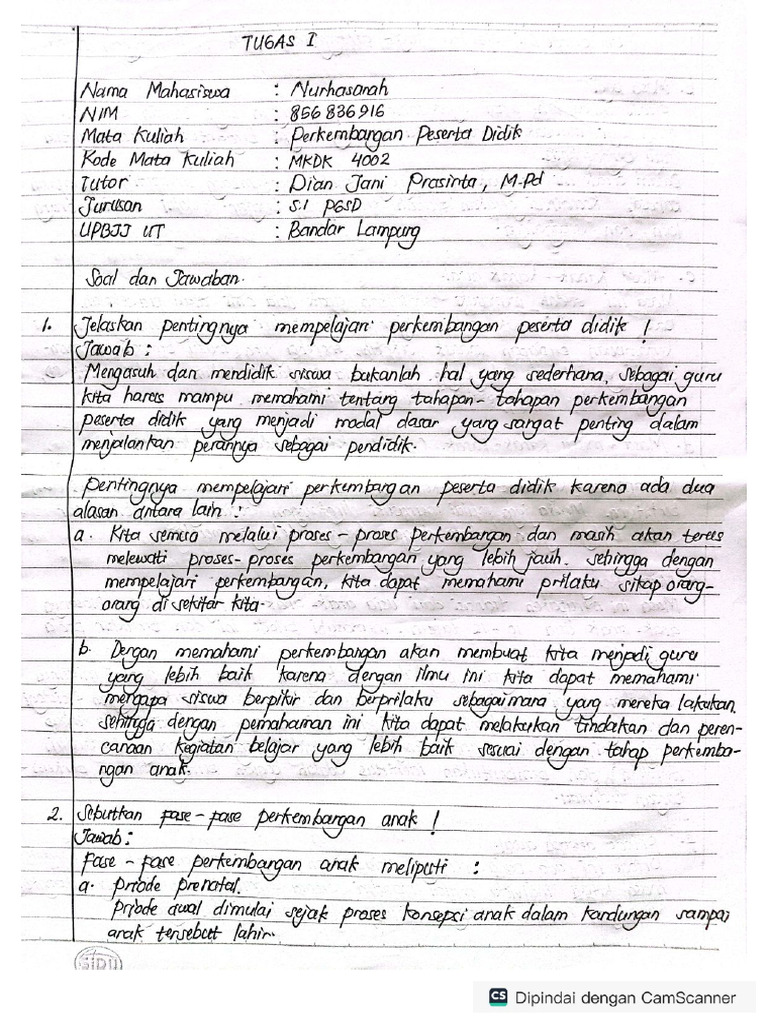 TUGAS I
Nama Mahasiswa : Nurhasanah
NIM : 856836916
Mata Kuliah : Perkembangan Peserta Didik
Kode Mata Kuliah : MKDK 4002
Tutor : Dian Jani Prasinta, M.Pd
Jurusan : S.1 PGSD
UPBJJ UT : Bandar Lampung
Soal dan Jawaban.
1. Jelaskan pentingnya mempelajari perkembangan peserta didik !
Jawab :
Mengasuh dan mendidik siswa bukanlah hal yang sederhana, sebagai guru
kita harus mampu memahami tentang tahapan-tahapan perkembangan
peserta didik yang menjadi modal dasar yang sangat penting dalam
menjalankan perannya sebagai pendidik.
pentingnya mempelajari perkembangan peserta didik karena ada dua
alasan antara lain :
a. Kita semua melalui proses-proses perkembangan dan masih akan terus
melewati proses-proses perkembangan yang lebih jauh. sehingga dengan
mempelajari perkembangan, kita dapat memahami prilaku sikap orang-
orang di sekitar kita.
b. Dengan memahami perkembangan akan membuat kita menjadi guru
yang lebih baik karena dengan ilmu ini kita dapat memahami
mengapa siswa berpikir dan berprilaku sebagaimana yang mereka lakukan
sehingga dengan pemahaman ini kita dapat melakukan tindakan dan peren-
canaan kegiatan belajar yang lebih baik sesuai dengan tahap perkemba-
ngan anak.
2. Sebutkan fase-fase perkembangan anak !
Jawab :
Fase-fase perkembangan anak meliputi :
a. Priode prenatal.
Priode awal dimulai sejak proses konsepsi anak dalam kandungan sampai
anak tersebut lahir.
SIDU
CS Dipindai dengan CamScanner